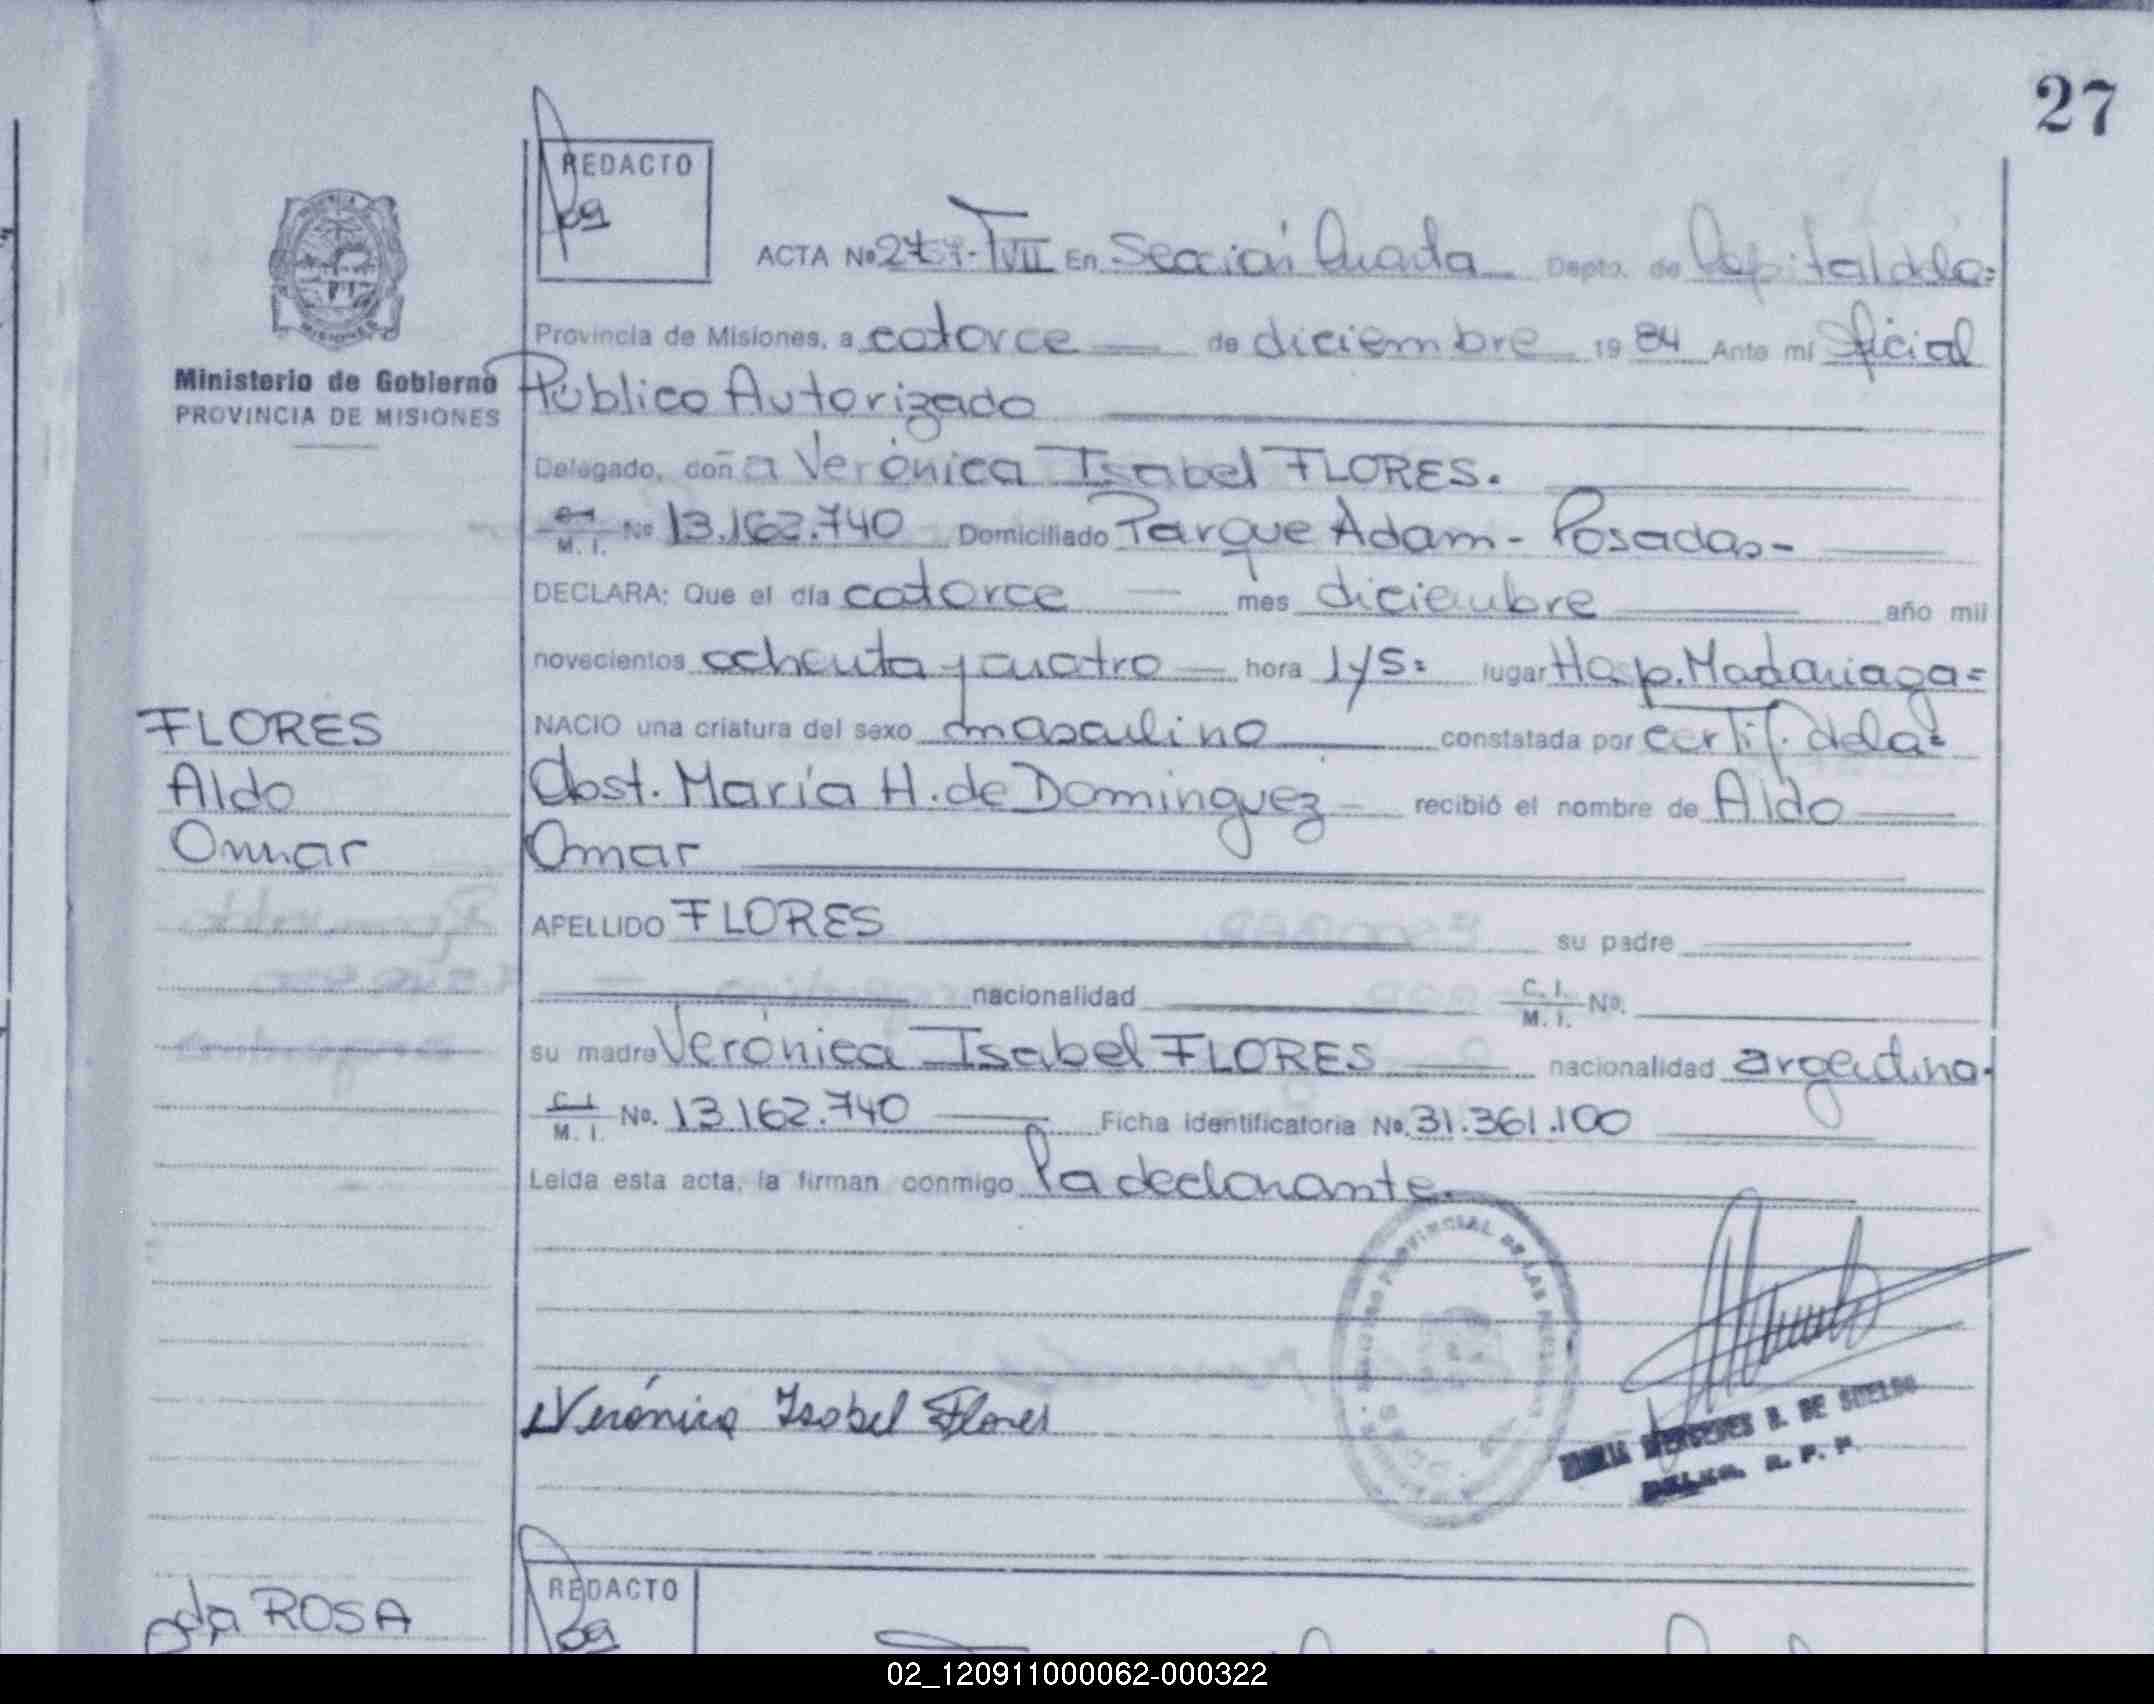 27
REDACTO
ACTA Nº 2767-TVII En Sección Cuarta Depto. de Capital de la=
Provincia de Misiones, a catorce de diciembre 1984 Ante mí Oficial
Ministerio de Gobierno
PROVINCIA DE MISIONES
Público Autorizado
Delegado, doña Verónica Isabel FLORES.
M. I. Nº 13.162.740 Domiciliado Parque Adam - Posadas-
DECLARA: Que el día catorce mes diciembre año mil
novecientos ochenta y cuatro hora 1y5= lugar Hosp. Madariaga=
FLORES
NACIO una criatura del sexo masculino constatada por certif. de la=
Aldo
Obst. María H. de Dominguez recibió el nombre de Aldo
Omar
Omar
APELLIDO FLORES su padre
nacionalidad C. I. M. I. Nº.
su madre Verónica Isabel FLORES nacionalidad argentina.
C. I. M. I. Nº. 13.162.740 Ficha identificatoria Nº. 31.361.100
Leída esta acta, la firman conmigo la declarante.
PROVINCIAL DE LAS PERSONAS
Verónica Isabel Flores
MARIA MERCEDES B. DE SUELDO
R. P. P.
REDACTO
da ROSA
02_120911000062-000322